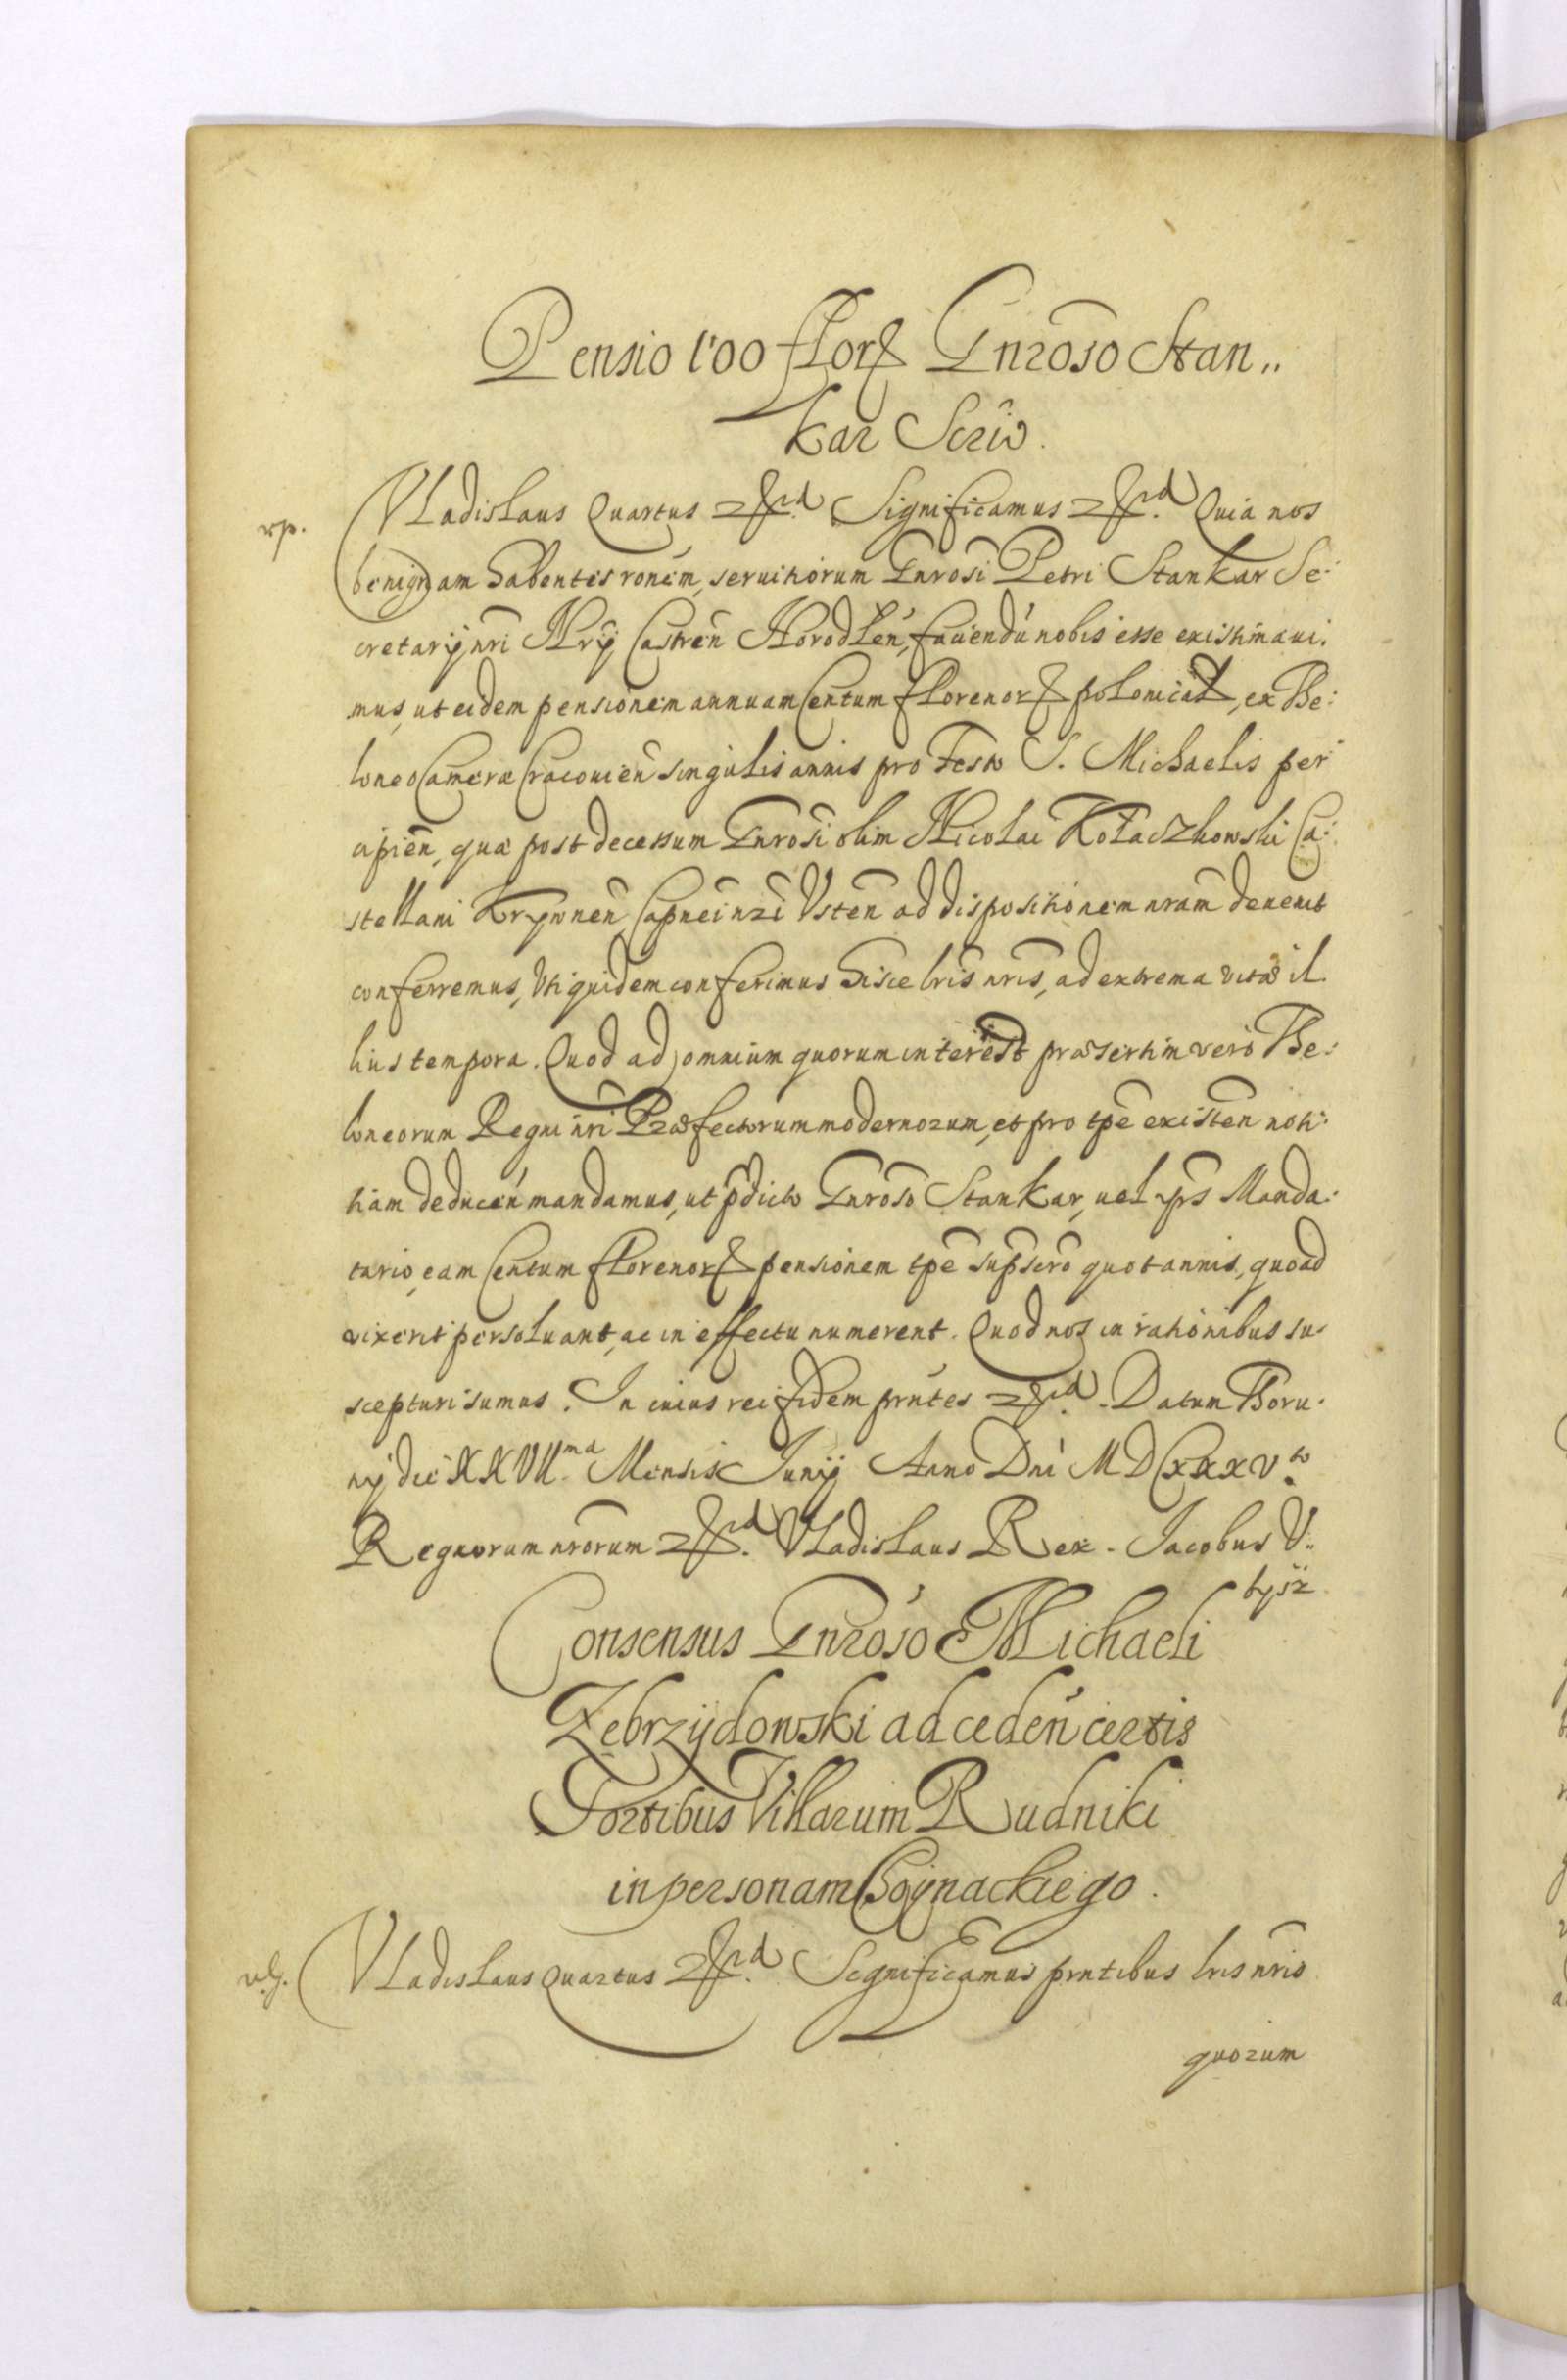 Pensio 100 florꝝ Gnroso Stan„
kar Scrib.
rp.
Vladislaus Quartus etc. Significamus etc. Quia nos
benignam habentes ronem, seruitiorum Gnrosi Petri Stankar Se:
cretarij nri Nrij Castren Horodlen, fauiendu nobis esse existimaui:
mus, ut eidem pensionem annuam Centum florenorꝝ polonicalꝝ, ex The:
loneo Cameræ Cracouien singulis annis pro Festo S. Michaelis per
cipien, quæ post decessum Gnrosi olim Nicolai Kołaczkowski Ca:
stellani Krywnen, Capnei nri Usten ad dispositionem nram deuenit
conferremus, Uti quidem conferimus hisce lris nris, ad extrema vitæ il
lius tempora. Quod ad omnium quorum interest præsertim vero The:
loneorum Regni nri Præfectorum modernorum, et pro tpe existen noti:
tiam deducen mandamus, ut pdicto Gnroso Stankar, uel ips Manda:
tario, eam Centum florenorꝝ pensionem tpe supscro quotannis, quoad
vixerit persoluant, ac in effectu numerent. Quod nos in rationibus su
scepturi sumus. In cuius rei fidem prntes etc. Datum Thoru:
nij die XXVII.ma Mensis Junij Anno Dni MDCXXXV.to
Regnorum nrorum etc. Vladislaus Rex. Jacobus V:
bysz
Consensus Gnroso Michaeli
Zebrzydowski ad ceden certis
Sortibus Villarum Rudniki
in personam Choynackiego.
Vladislaus Quartus etc. Significamus prntibus lris nris
quorum